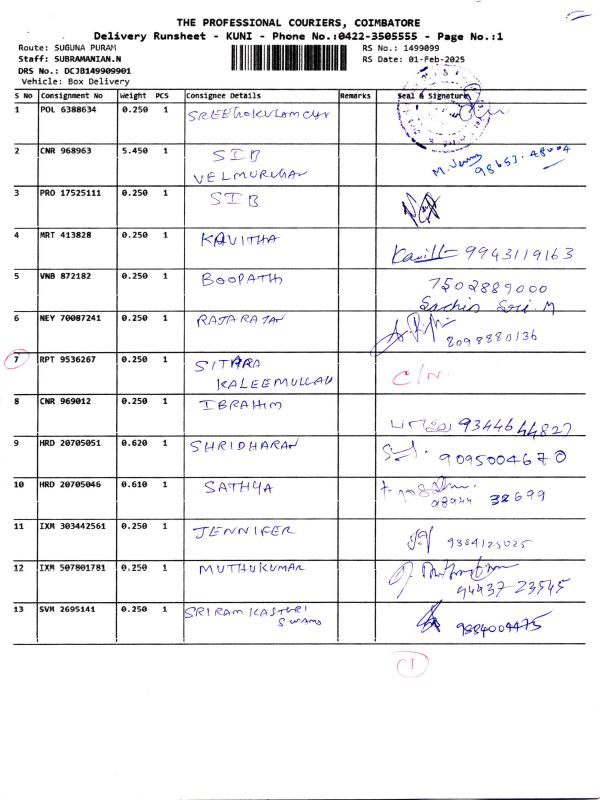 THE PROFESSIONAL COURIERS, COIMBATORE
Delivery Runsheet - KUNI - Phone No.:0422-3505555 - Page No.:1
Route: SUGUNA PURAM RS No.: 1499099
Staff: SUBRAMANIAN.N RS Date: 01-Feb-2025
DRS No.: DCJB149909901
Vehicle: Box Delivery
S No Consignment No Weight PCS Consignee Details Remarks Seal & Signature
1 POL 6388634 0.250 1
2 CNR 968963 5.450 1 SIB
VELMURUGAN
3 PRO 17525111 0.250 1 SIB
4 MRT 413828 0.250 1 KAVITHA 9943119163
5 VNB 872182 0.250 1 BOOPATH 7502889000
6 NEY 70087241 0.250 1 RAJARAJAN 8098880136
7 RPT 9536267 0.250 1 SITARA C/N.
KALEEMULLAH
8 CNR 969012 0.250 1 IBRAHIM 9344644827
9 HRD 20705051 0.620 1 SHRIDHARAN 9095004670
10 HRD 20705046 0.610 1 SATHYA
11 IXM 303442561 0.250 1 JENNIFER 9384125025
12 IXM 507801781 0.250 1 MUTHUKUMAR 94437-23545
13 SVM 2695141 0.250 1 SRIRAM KASTURI 9884004475
1